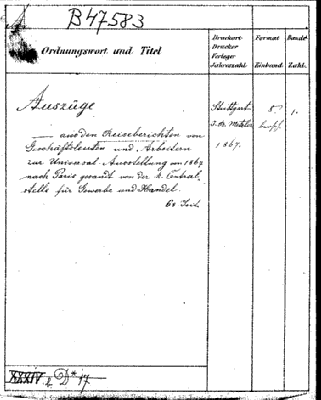 B47583
Ordnungswort und Titel
Druckort
Drucker
Verleger
Jahreszahl.
Format
Einband.
Bände
Zahl.
Auszüge
— aus den Reiseberichten von
Geschäftsleuten und Arbeitern
zur Universal-Ausstellung von 1867
nach Paris gesandt von der k. Central-
stelle für Gewerbe und Handel.
68 Seit.
Stuttgart
J. B. Metzler
1867.
8°
1.
XXXIV 2 D* 17